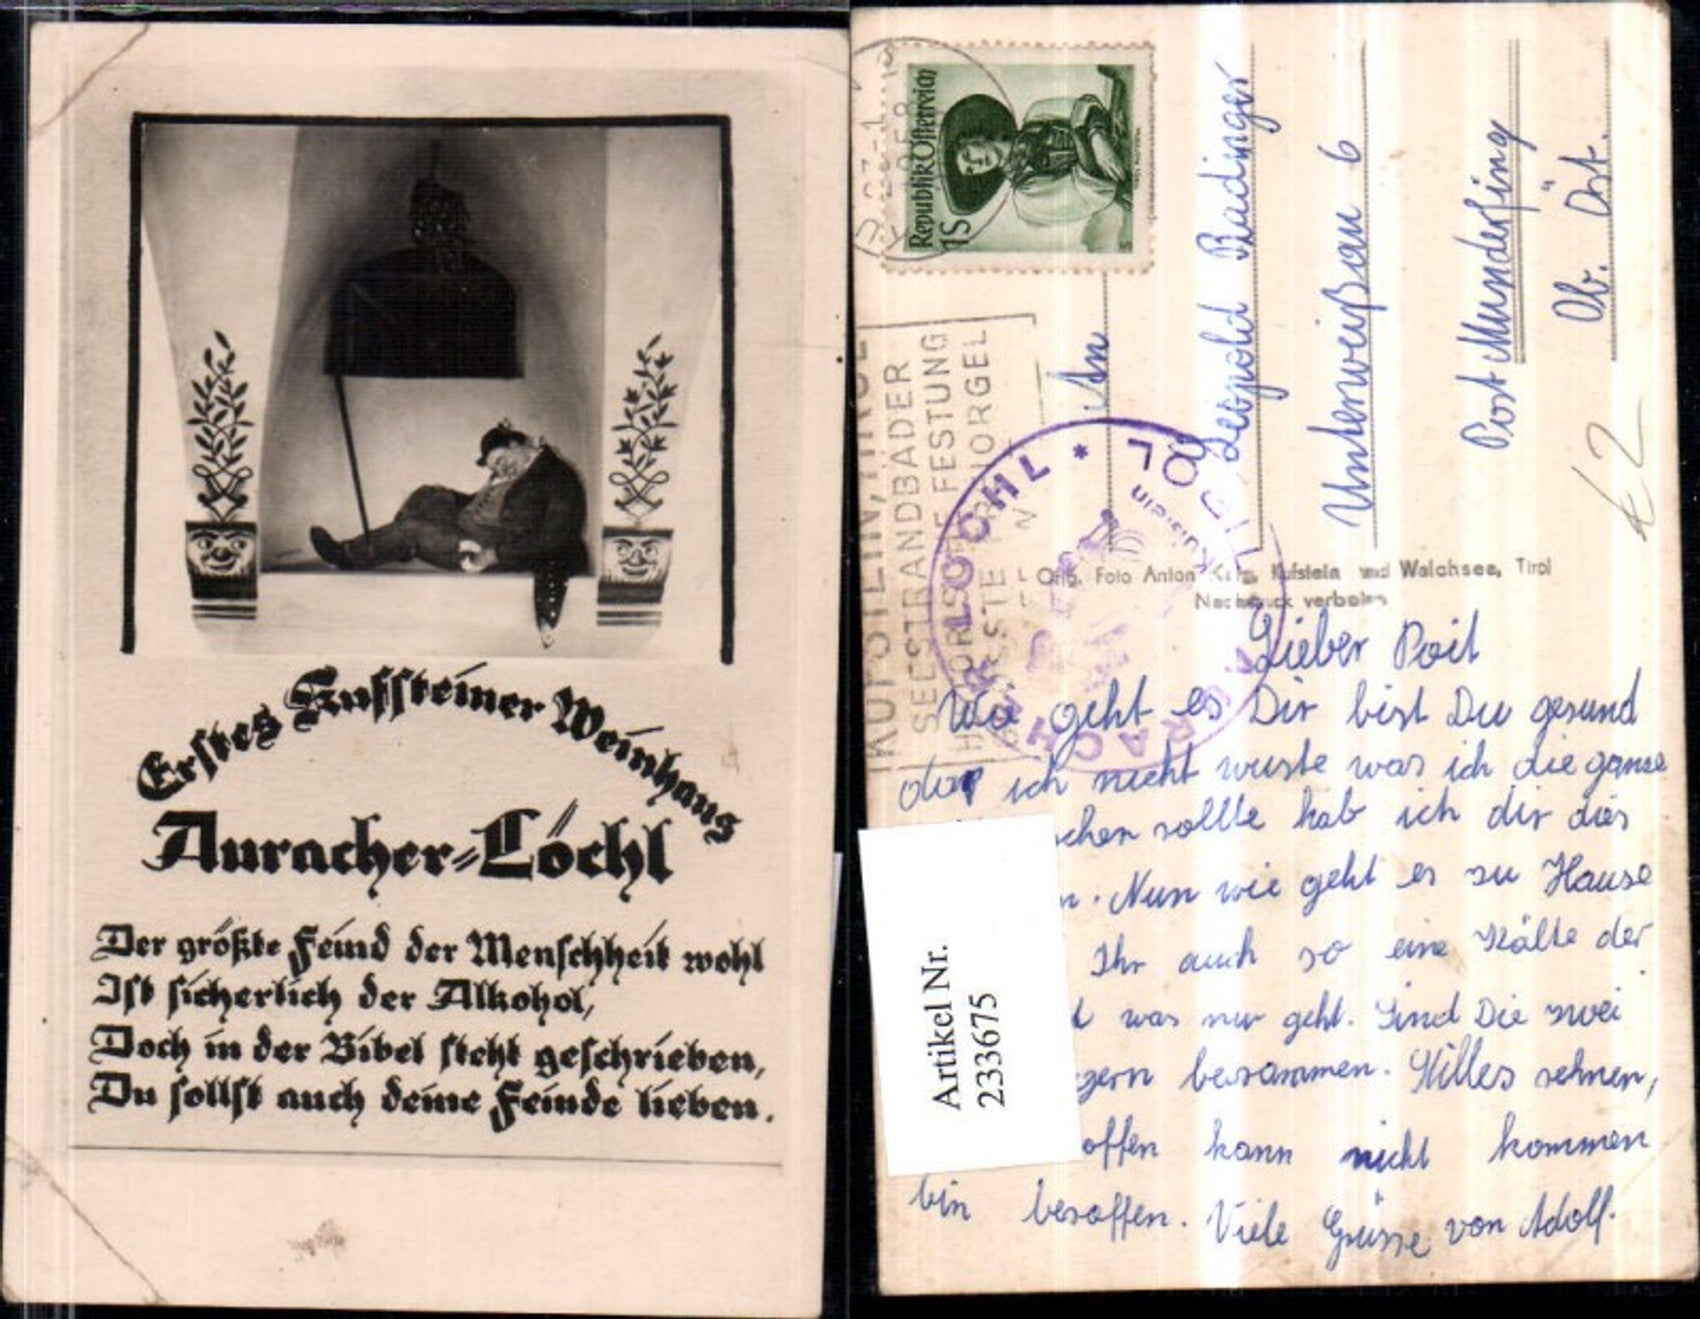 Erstes Kufsteiner Weinhaus
Auracher-Löchl
Der größte Feind der Menschheit wohl
Ist sicherlich der Alkohol,
Doch in der Bibel steht geschrieben,
Du sollst auch deine Feinde lieben.
Republik Österreich
1S
KUFSTEIN,
SEESTRANDBÄDER
FESTUNG
ORGEL
AURACHER LÖCHL * TIROL
Kufstein
An
Leopold Badinger
Unterweißau 6
Post Munderfing
Ob. Öst.
€2
Orig. Foto Anton Karg, Kufstein und Walchsee, Tirol
Nachdruck verboten
Lieber Poit
Wie geht es Dir bist Du gesund
da ich nicht wuste was ich die ganze
schen sollte hab ich dir dies
n. Nun wie geht es zu Hause
Ihr auch so eine Kälte der
was nur geht. Sind Die zwei
zern besammen. Stilles sehnen,
offen kann nicht kommen
bin besoffen. Viele Grüsse von Adolf.
Artikel Nr.
233675